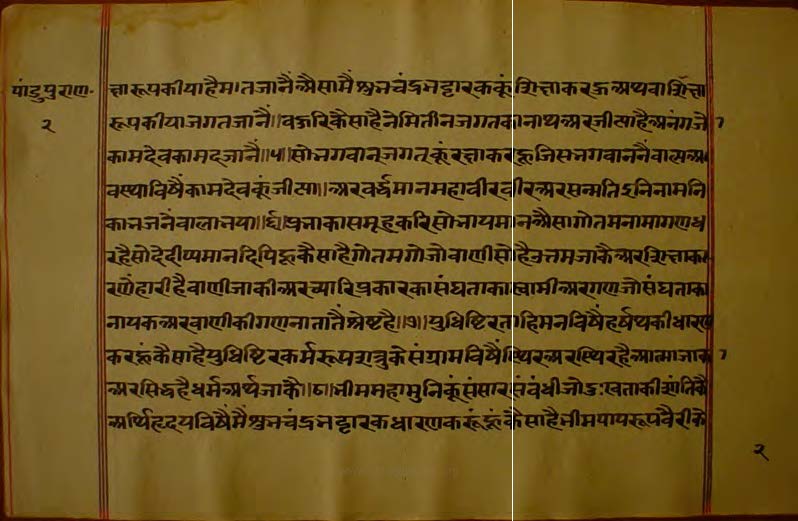 पांडुपुराण॰
२
त्तारूपकीयाहैमातजानैंअैसामैंशुभचंद्रभट्टारककूंशित्ताकरऊअथवाशित्ता
रूपकीयाजगतजानैं॥वऊरिकैसाहैनेमितीनजगतकानाथअरजीत्याहैअनंगजो
कामदेवकामदजानैं॥५॥सोभगवानजगतकूंरत्ताकरहूजिसभगवाननैंवालअ
वस्थाविषैंकामदेवकूंजीत्या॥अरवर्द्धमानमहावीरवीरअरसन्मतिऽनिनामनि
काभजनैंवालाभया॥६॥प्रभाकासमूहकरिसोभायमानअैसागोतमनामागणध
रहैसोदेदीप्यमानदिपिहूकैसाहैगोतमगोजोवाणीसोहैउत्तमजाकैअरशित्ताका
रणैंहारीहैवाणीजाकीअरच्यारिप्रकारकासंघताकास्वामीअरगणजोसंघताका
नायकअरवाणीकीगणनातातैंश्रेष्टहै॥७॥युधिष्टिरताहिमनविषैंहर्षथकीधारण
करहूंकैसाहैयुधिष्टिरकर्मरूपशत्रुकेसंग्रामविषैंस्थिरअरस्थिरहैआत्माजाक
अरसिद्धहैधर्मअर्थजाकै॥८॥भीममहामुनिकूंसंसारसंवंधीजोदुःखताकीशांतिकै
अर्थिहृदयविषैंमैंशुभचंद्रभट्टारकधारणकरूंहूंकैसाहैभीमपापरूपवैरीके
२